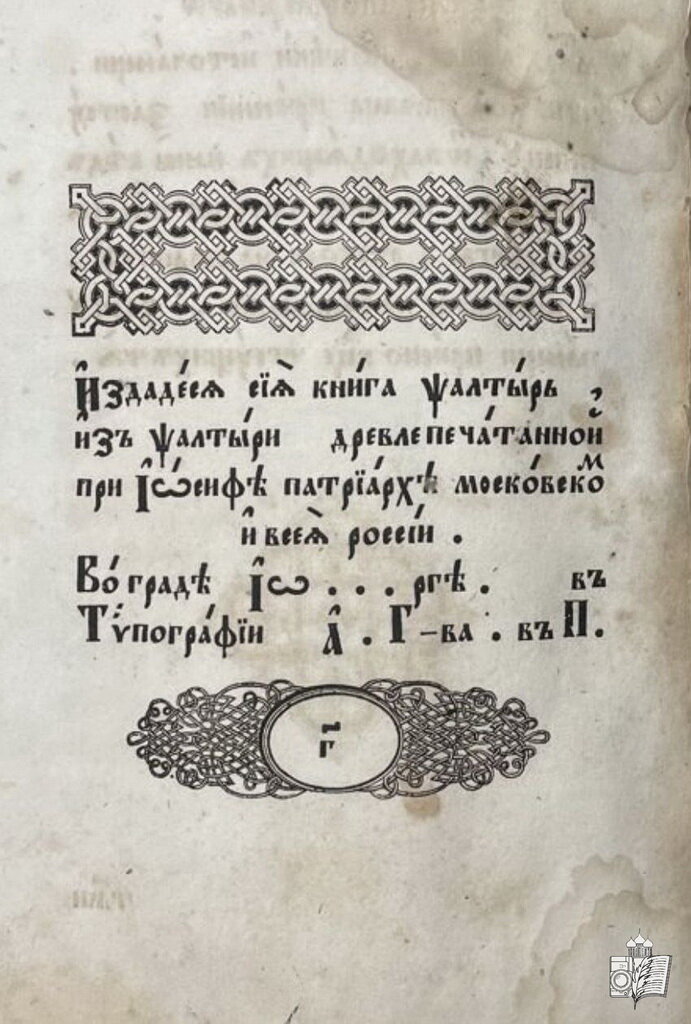 И҆здаде́сѧ сїѧ̀ кни́га ѱалты́рь ,
и҆зъ ѱалты́ри древлепеча́танной
при І҆ѡ́сифѣ патрїа́рхѣ моско́вскоⷨ
и҆ всеѧ̀ россі́и .
Во́ градѣ І҆ѡ . . . ргѣ . въ
Тѷпогра́фїи А҆ . Г-ва . въ П .
г҃